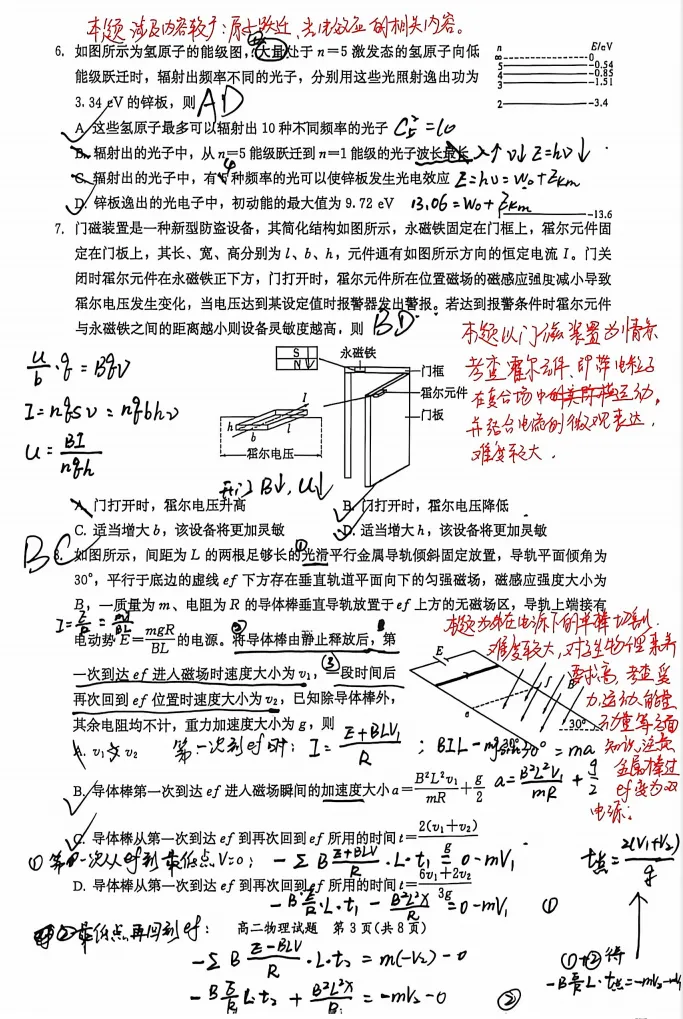 本题涉及内容较广:原子跃迁、光电效应的相关内容。
6. 如图所示为氢原子的能级图,大量处于n=5激发态的氢原子向低
能级跃迁时,辐射出频率不同的光子,分别用这些光照射逸出功为
3.34 eV的锌板,则 AD
n E/eV
∞ 0
5 -0.54
4 -0.85
3 -1.51
2 -3.4
-13.6
A. 这些氢原子最多可以辐射出10种不同频率的光子 C₅²=10
B. 辐射出的光子中,从n=5能级跃迁到n=1能级的光子波长最长 λ↑ υ↓ E=hυ↓
C. 辐射出的光子中,有4种频率的光可以使锌板发生光电效应 E=hυ=W₀+Ekm
D. 锌板逸出的光电子中,初动能的最大值为9.72 eV 13.06=W₀+Ekm
7. 门磁装置是一种新型防盗设备,其简化结构如图所示,永磁铁固定在门框上,霍尔元件固
定在门板上,其长、宽、高分别为l、b、h,元件通有如图所示方向的恒定电流I。门关
闭时霍尔元件在永磁铁正下方,门打开时,霍尔元件所在位置磁场的磁感应强度减小导致
霍尔电压发生变化,当电压达到某设定值时报警器发出警报。若达到报警条件时霍尔元件
与永磁铁之间的距离越小则设备灵敏度越高,则 BD
本题以门磁装置为情景
考查霍尔元件、即带电粒子
在复合场中的运动,
并结合电流的微观表达,
难度较大.
U/b·q=Bqv
I=nqsv=nqbhv
U=BI/nqh
S
N
永磁铁
门框
霍尔元件
门板
I
h
b
l
霍尔电压
B↓,U↓
A. 门打开时,霍尔电压升高
B. 门打开时,霍尔电压降低
C. 适当增大b,该设备将更加灵敏
D. 适当增大h,该设备将更加灵敏
BC
如图所示,间距为L的两根足够长的光滑平行金属导轨倾斜固定放置,导轨平面倾角为
30°,平行于底边的虚线ef下方存在垂直轨道平面向下的匀强磁场,磁感应强度大小为
B,一质量为m、电阻为R的导体棒垂直导轨放置于ef上方的无磁场区,导轨上端接有
I=E/R=mg/BL
电动势E=mgR/BL的电源。将导体棒由静止释放后,第
一次到达ef进入磁场时速度大小为v₁,一段时间后
再次回到ef位置时速度大小为v₂,已知除导体棒外,
其余电阻均不计,重力加速度大小为g,则
E
e
f
B
30°
本题为存在电源下的单棒切割,
难度较大,
要求高,考查受
力、运动、能量
动量等方面
知识,注意
金属棒过
ef变为双
电源.
A. v₁<v₂
第一次到ef时: I=E+BLV₁/R ; BIL-mgsin30°=ma
B. 导体棒第一次到达ef进入磁场瞬间的加速度大小a=B²L²v₁/mR+g/2 a=B²L²V₁/mR+g/2
C. 导体棒从第一次到达ef到再次回到ef所用的时间t=2(v₁+v₂)/g
① 第一次从ef到最低点V=0; -ΣB E+BLV/R·L·t₁=0-mV₁
t总=2(V₁+V₂)/g
D. 导体棒从第一次到达ef到再次回到ef所用的时间t=6v₁+2v₂/3g
-B·E/R·L·t₁-B²L²X/R=0-mV₁ ①
② 最低点再回到ef:
高二物理试题 第3页(共8页)
-ΣB E-BLV/R·L·t₂=m(-V₂)-0
①+②得
-B E/R L·t总=-mV₂-mV₁
-B E/R L·t₂+B²L²X/R=-mV₂-0 ②